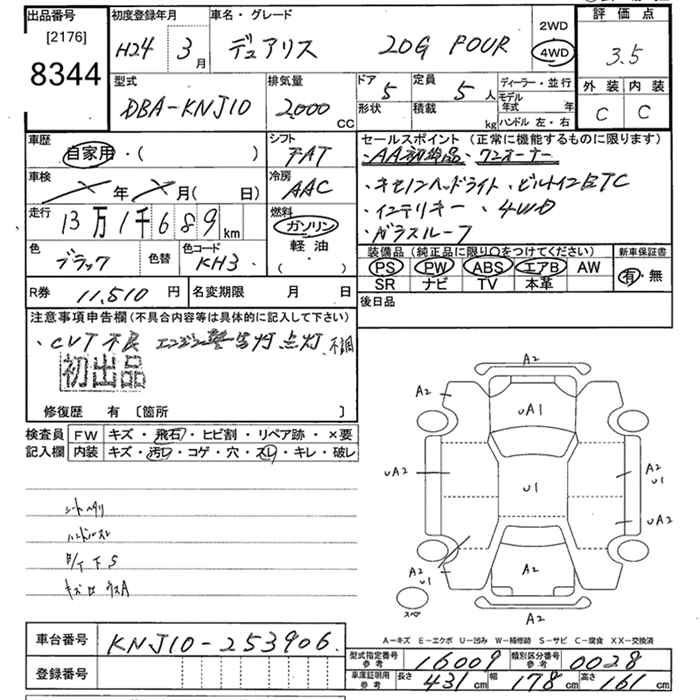 出品番号
[2176]
8344
初度登録年月
H24 3月
車名・グレード
デュアリス 20G FOUR
2WD
4WD
評価点
3.5
外装 内装
C C
型式
DBA-KNJ10
排気量
2000 CC
ドア 5
形状
定員 5 人
積載 kg
ディーラー・並行
モデル年式 年
ハンドル 左・右
車歴
自家用・( )
シフト
FAT
セールスポイント (正常に機能するものに限ります)
・AA初出品、ワンオーナー
・キセノンヘッドライト、ビルトインETC
・インテリキー、4WD
・ガラスルーフ
車検
年 月( 日)
冷房
AAC
走行
13万1千689km
燃料
ガソリン
軽油
・( )
色
ブラック
色替
色コード
KH3
装備品(純正品に限り○をつけてください)
PS PW ABS エアB AW
SR ナビ TV 本革
新車保証書
有・無
R券 11,510円
名変期限 月 日
後日品
注意事項申告欄(不具合内容等は具体的に記入して下さい)
・CVT不良 エンジン警告灯点灯、不調
初出品
修復歴 有 [箇所 ]
検査員記入欄
FW キズ・飛石・ヒビ割・リペア跡・×要
内装 キズ・汚レ・コゲ・穴・スレ・キレ・破レ
シートヘタリ
ハンドルスレ
F/T下S
A2
A2
uA1
uA2
u1
A2
u1
uA2
A2
u1
A2
A2
スペア
A-キズ E-エクボ U-凹み W-補修跡 S-サビ C-腐食 XX-交換済
車台番号 KNJ10-253906
登録番号
型式指定番号 参考 16009
類別区分番号 参考 0028
車庫証明用 参考 長さ 431cm 幅 178cm 高さ 161cm